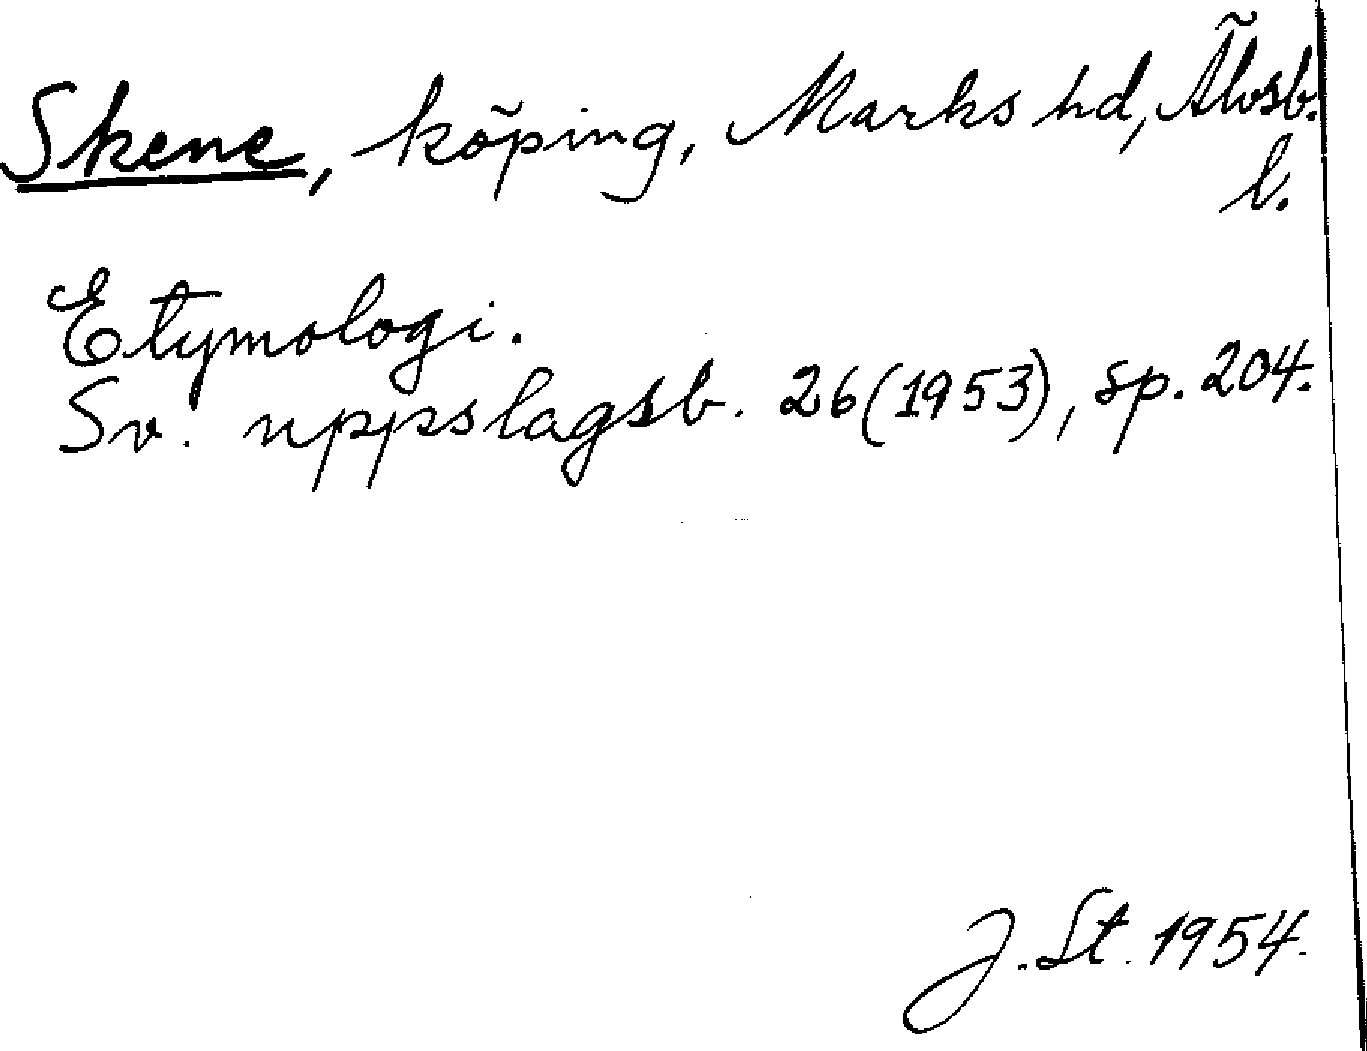 Skene, köping, Marks hd, Älvsb.
l.
Etymologi.
Sv. uppslagsb. 26(1953), sp. 204.
J. St. 1954.